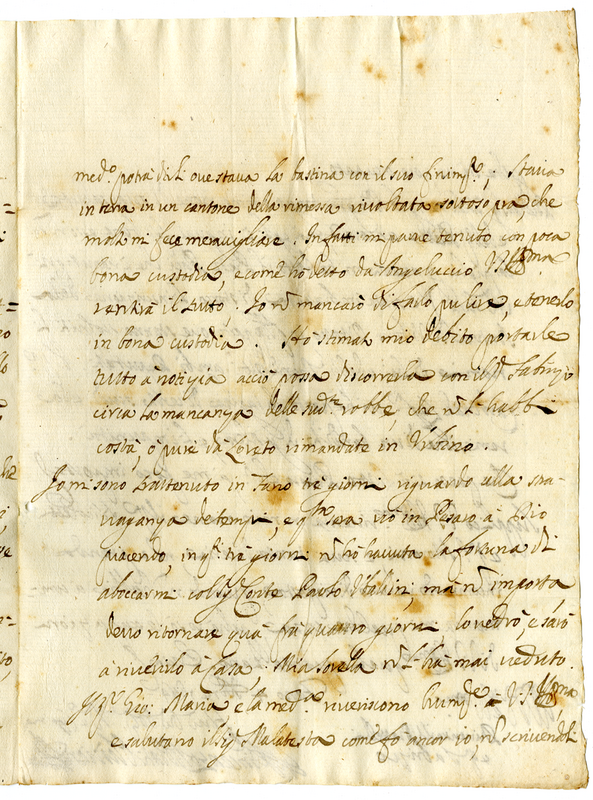 med.º potrà dirli ove stava la bastina con il suo finim.to; stava
in terra in un cantone della rimessa rivoltata sottosopra, che
molto mi fece meravigliare. In fatti mi pare tenuto con poca
bona custodia, e come hò detto da Angeluccio V.S. Ill.ma
sentirà il tutto. Io nõ mancarò di farlo pulire, e tenerlo
in bona custodia. Hò stimato mio debito portarle
tutto à notizia acciò possa discorrerla con il Sig.r Fabrizio
circa la mancanza delle sud.te robbe, che nõ l'habbi
costà, ò pure da Loreto rimandate in Urbino.
Io mi sono trattenuto in Fano trè giorni riguardo alla stra-
vaganza de tempi, e q.sta sera vò in Pesaro à Dio
piacendo, in q.sti trè giorni nõ hò havuta la fortuna di
aboccarmi col Sig. Conte Paolo, mà nõ importa
devo ritornare quà frà quattro giorni, lo vedrò, e sarò
à riverirlo à Casa, Mia Sorella nõ l'hà mai veduto.
Il Sig.r Gio: Maria e la med.ma riveriscono hum.te à V.S. Ill.ma,
e salutano il Sig. Malatesta come fò ancor io, nõ scrivendoli